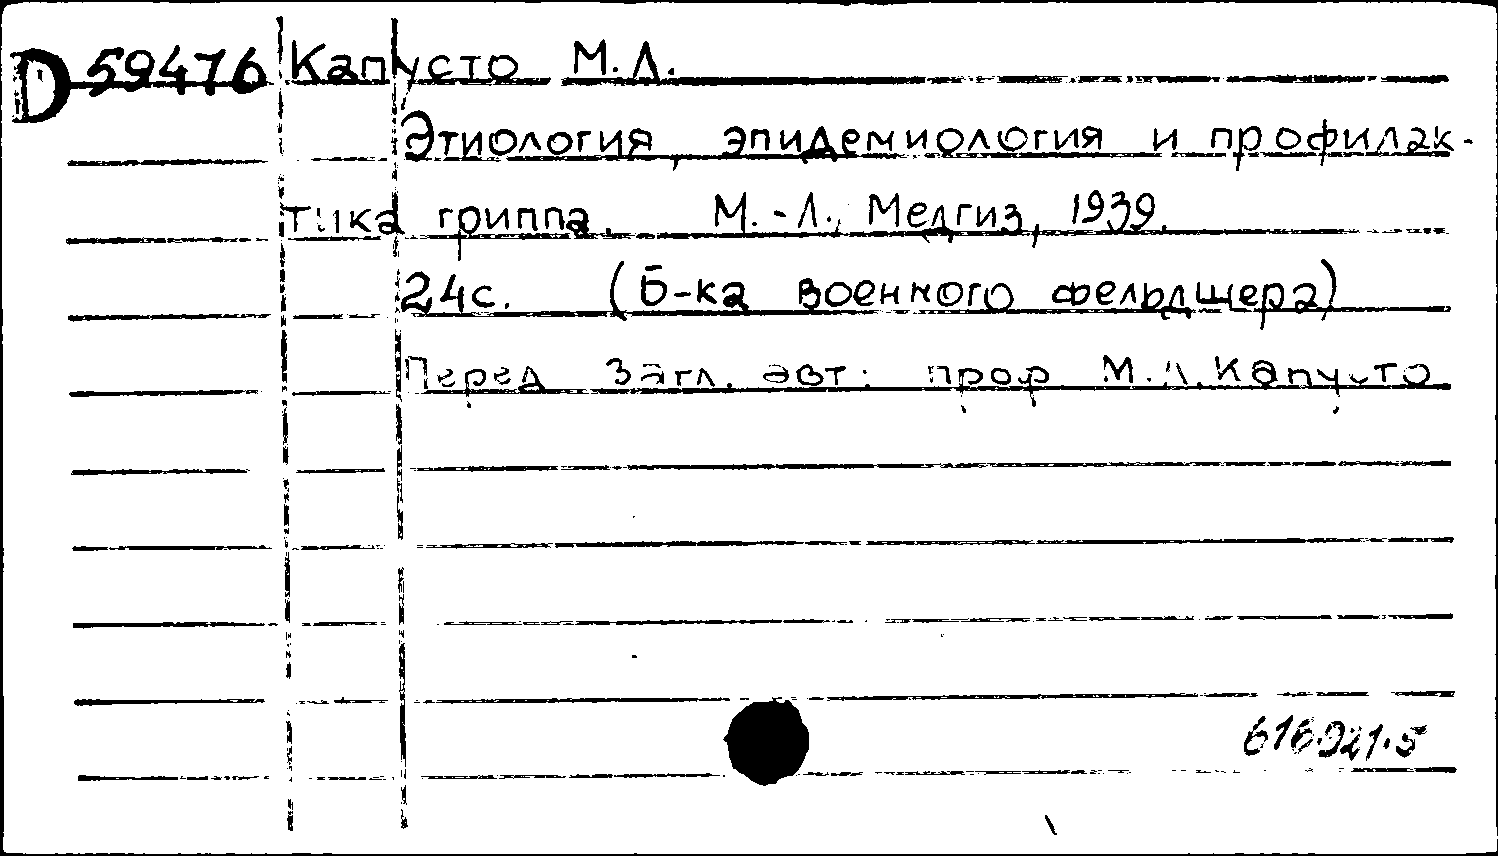 D 59476 Капусто М.Л.
Этиология, эпидемиология и профилак-
тика гриппа. М.-Л., Медгиз, 1939.
24с. (Б-ка военного фельдщера)
Перед загл. авт: проф М.Л.Капусто
616.921.5